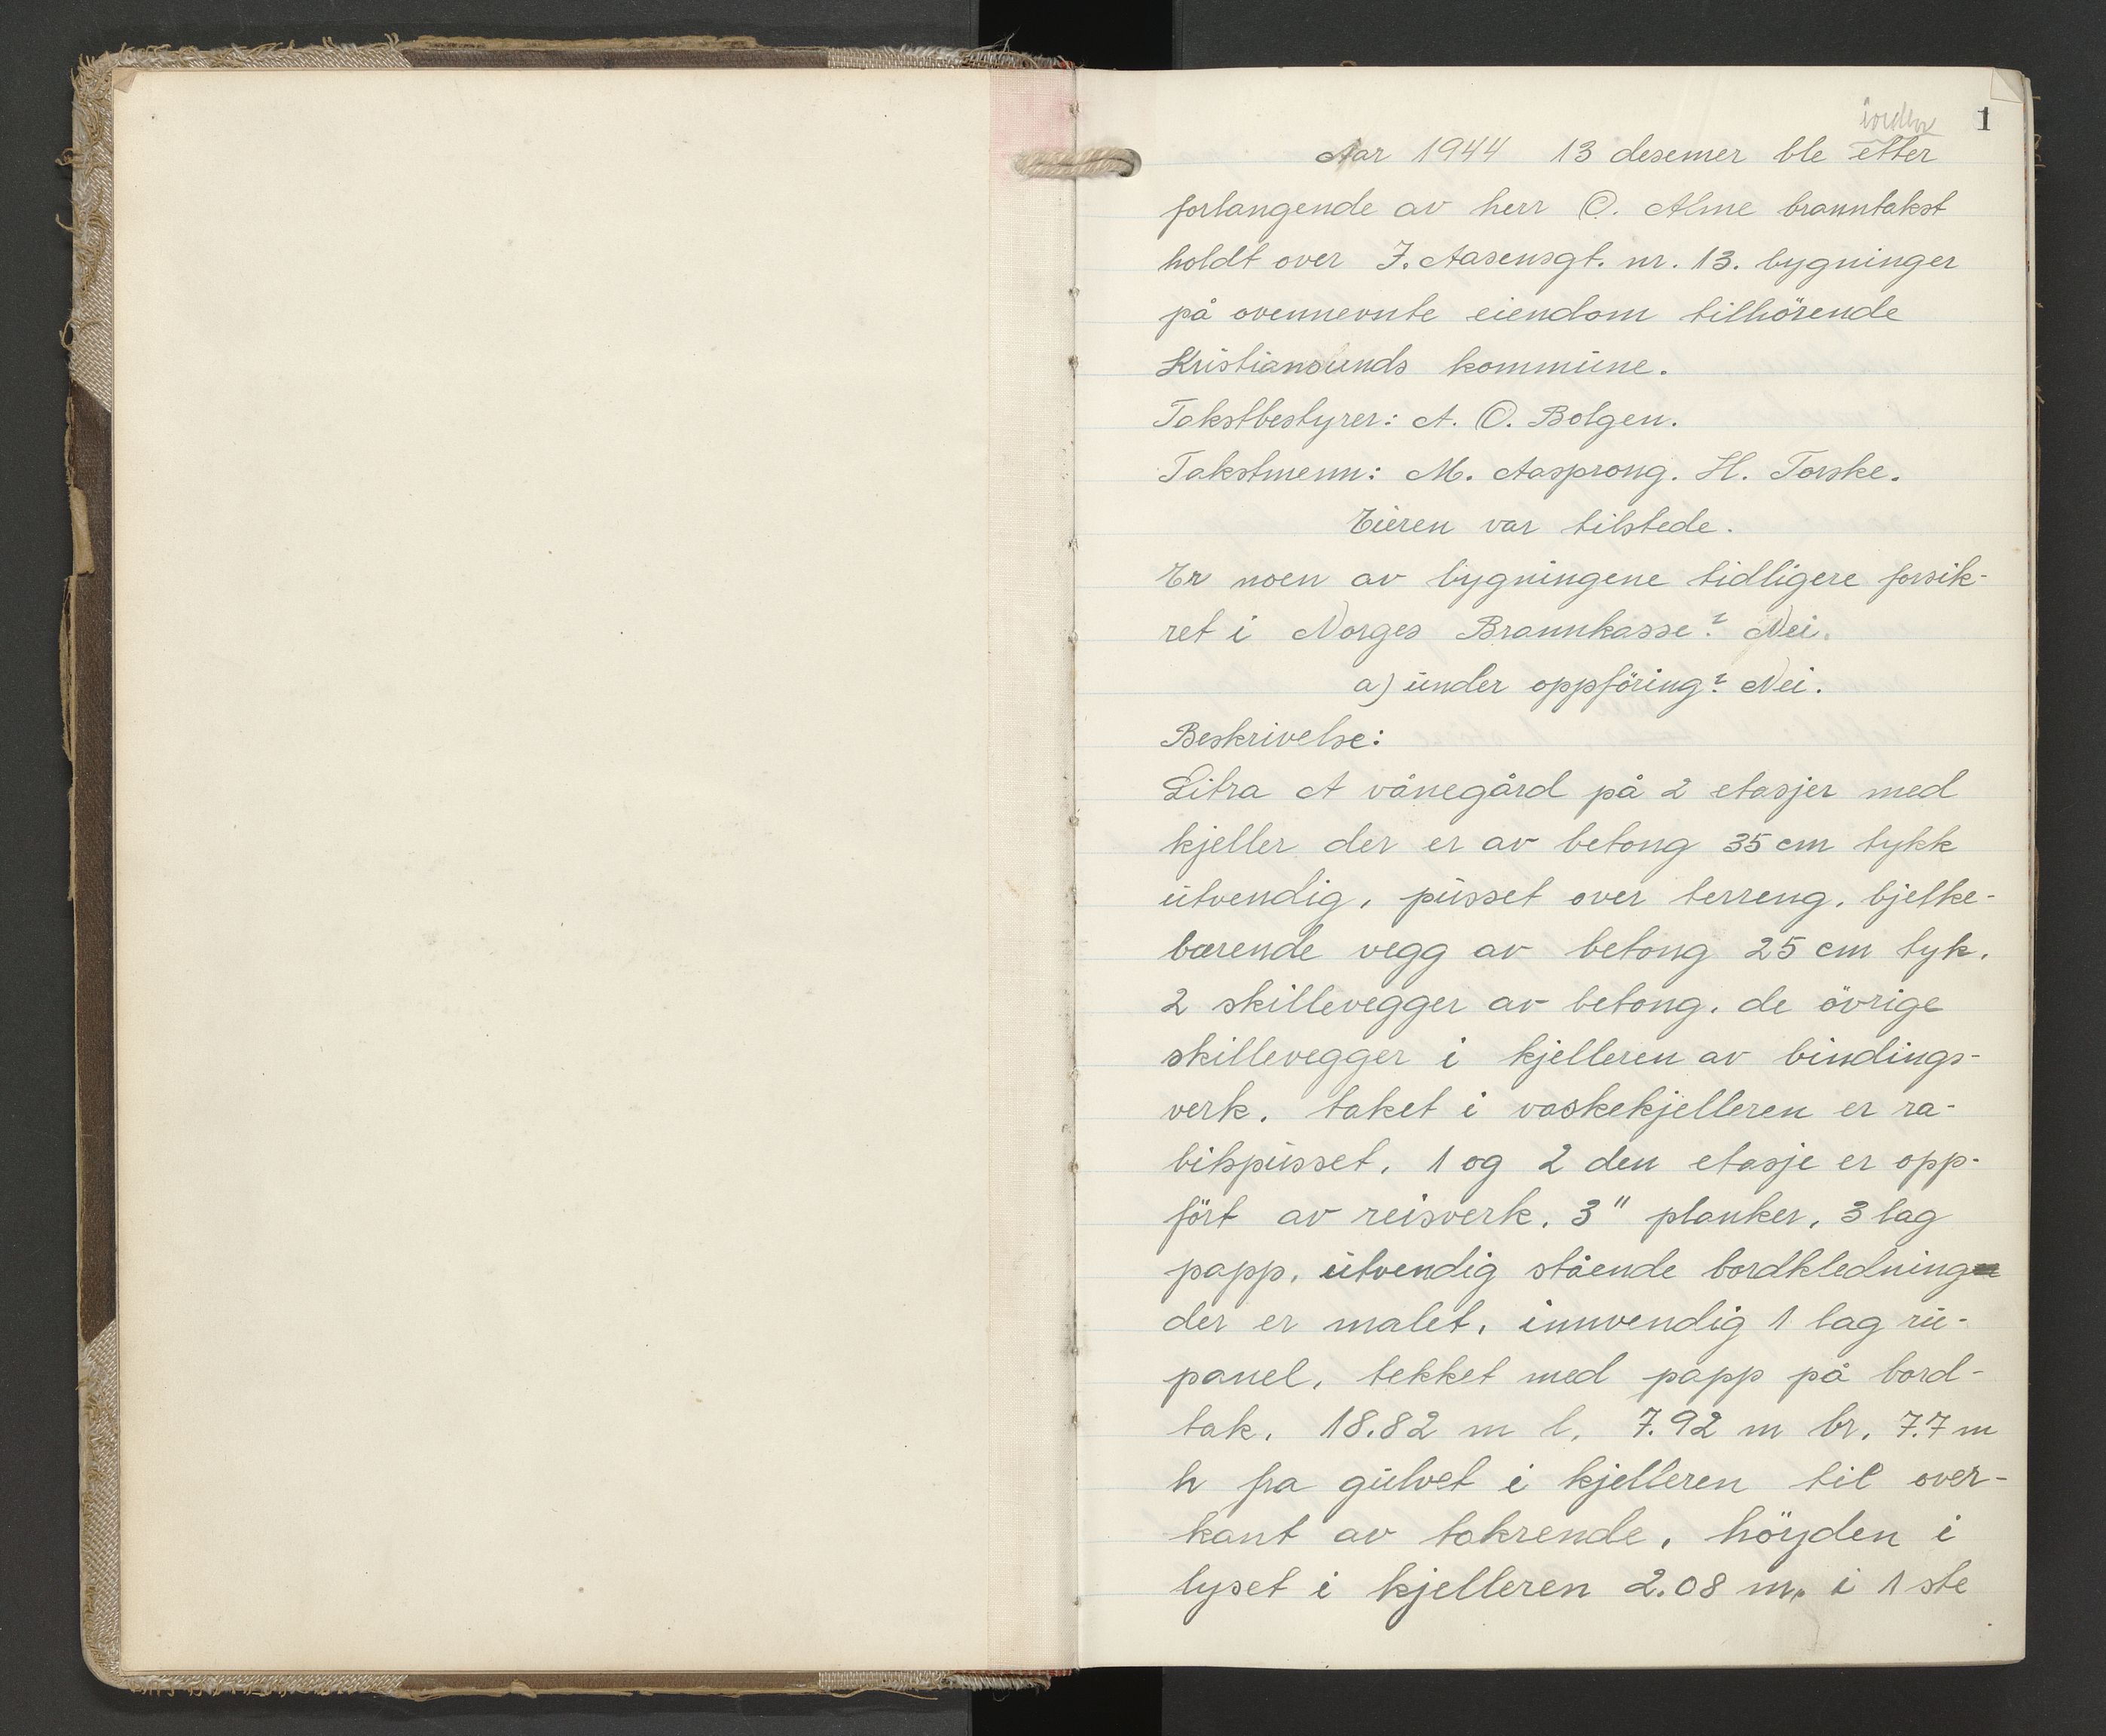 1
Aar 1944 13 desemer ble etter
forlangende av herr O. Alme branntakst
holdt over I. Aasensgt. nr. 13. bygninger
på ovennevnte eiendom tilhörende
Kristiansunds kommune.
Takstbestyrer: A. O. Bolgen.
Takstmenn: M. Aasprong. H. Torske.
Eieren var tilstede.
Er noen av bygningene tidligere forsik-
ret i Norges Brannkasse? Nei.
a) under oppföring? Nei.
Beskrivelse:
Litra A vånegård på 2 etasjer med
kjeller der er av betong 35 cm tykk
utvendig, pusset over terreng, bjelke-
bærende vegg av betong 25 cm tyk.
2 skillevegger av betong. de övrige
skillevegger i kjelleren av bindings-
verk. taket i vaskekjelleren er ra-
bitspusset. 1 og 2 den etasje er opp-
fört av reisverk. 3" planker, 3 lag
papp, utvendig stående bordkledning
der er malet, innvendig 1 lag ru-
panel, tekket med papp på bord-
tak. 18.82 m l. 7.92 m br. 7.7 m
h fra gulvet i kjelleren til over-
kant av takrende, höyden i
lyset i kjelleren 2.08 m. i 1 ste